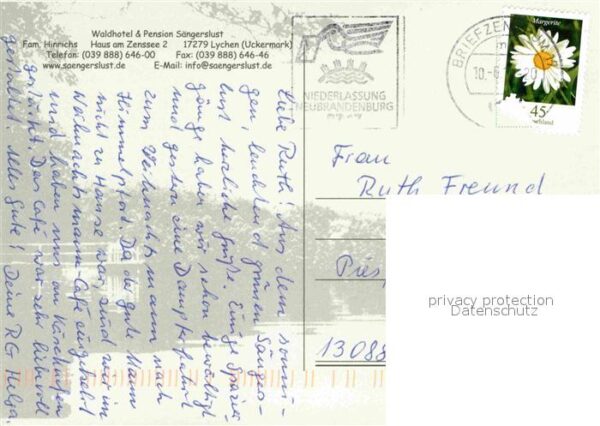 Waldhotel & Pension Sängerslust
Fam. Hinrichs Haus am Zenssee 2 17279 Lychen (Uckermark)
Telefon: (039 888) 646-00 Fax: (039 888) 646-46
www.saengerslust.de E-Mail: info@saengerslust.de
NIEDERLASSUNG
NEUBRANDENBURG
BRIEFZEN
10.-
Margerite
45
Deutschland
Liebe Ruth! Aus dem sonni-
gen, leuchtend grünen Sängers-
lust herzliche Grüße. Einige Spazier-
gänge haben wir schon bewältigt
und gestern eine Dampferfahrt
zum Weihnachtsmann nach
Himmelpfort. Da der gute Mann
nicht zu Hause war, sind wir im
Weihnachtsmann-Café eingekehrt
und haben uns am Kirschkuchen
gelabt. Das Café war sehr liebevoll
gestaltet. Alles Gute! Deine RG Helga.
Frau
Ruth Freund
Pies
13088
privacy protection
Datenschutz